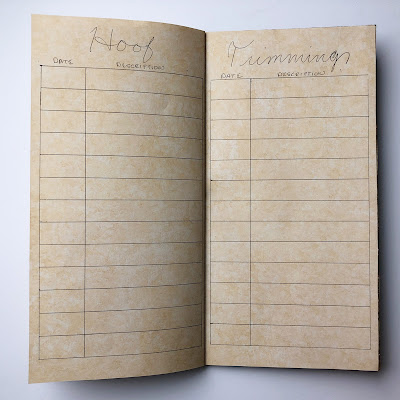 Hoof
DATE DESCRIPTION
Trimmings
DATE DESCRIPTION